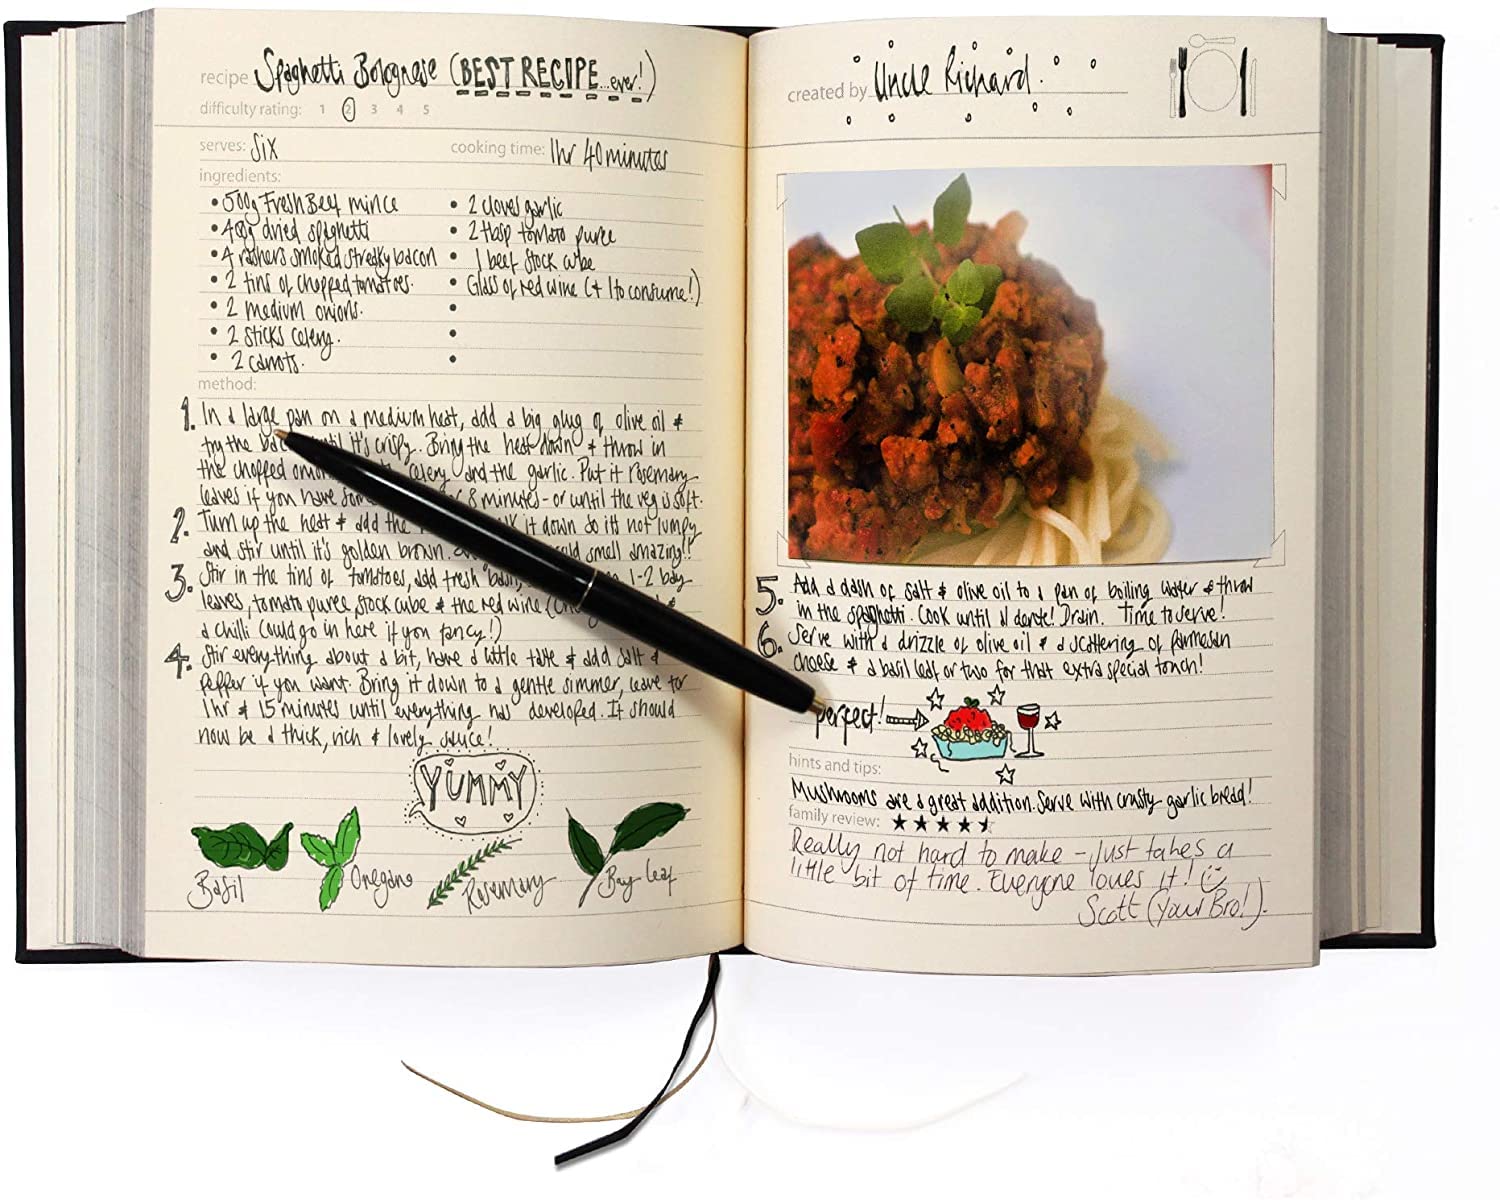 recipe Spaghetti Bolognese (BEST RECIPE...ever!)
difficulty rating: 1 2 3 4 5
serves: Six
cooking time: 1hr 40 minutes
ingredients:
• 500g Fresh Beef mince
• dried spaghetti
• 4 rashers smoked streaky bacon
• 2 tins of chopped tomatoes.
• 2 medium onions.
• 2 sticks celery.
• 2 carrots.
• 2 cloves garlic
• 2 tbsp tomato puree
• 1 beef stock cube
• Glass of red wine (+ 1 to consume!)
method:
1. In a large pan on a medium heat, add a big glug of olive oil &
fry the until it's crispy. Bring the heat down & throw in
the chopped celery and the garlic. Put it rosemary
leaves if you have 8 minutes - or until the veg is soft.
2. Turn up the heat & add the it down so it's not lumpy
and stir until it's golden brown. smell amazing!!
3. Stir in the tins of tomatoes, add fresh basil, 1-2 bay
leaves, tomato puree, stock cube & the red wine &
a chilli could go in here if you fancy!)
4. Stir everything about a bit, have a little taste & add salt &
pepper if you want. Bring it down to a gentle simmer, leave for
1hr & 15 minutes until everything has developed. It should
now be a thick, rich & lovely sauce!
YUMMY
Basil
Oregano
Rosemary
Bay leaf
created by Uncle Richard.
5. Add a dash of salt & olive oil to a pan of boiling water & throw
in the spaghetti. Cook until al dente! Drain. Time to serve!
6. Serve with a drizzle of olive oil & a scattering of parmesan
cheese & a basil leaf or two for that extra special touch!
perfect!
hints and tips:
Mushrooms are a great addition. Serve with crusty garlic bread!
family review:
Really not hard to make - just takes a
little bit of time. Everyone loves it!
Scott (Your Bro!).